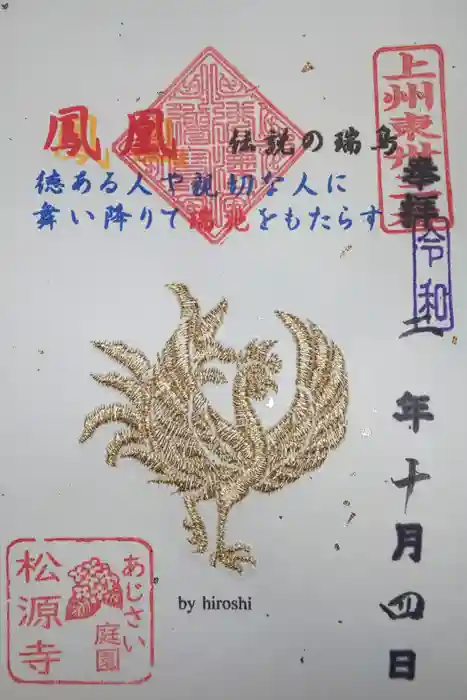 上州東州
奉拝
令和二年十月四日
鳳凰
伝説の瑞鳥
徳ある人や親切な人に
舞い降りて瑞兆をもたらす
by hiroshi
あじさい
庭園
松源寺